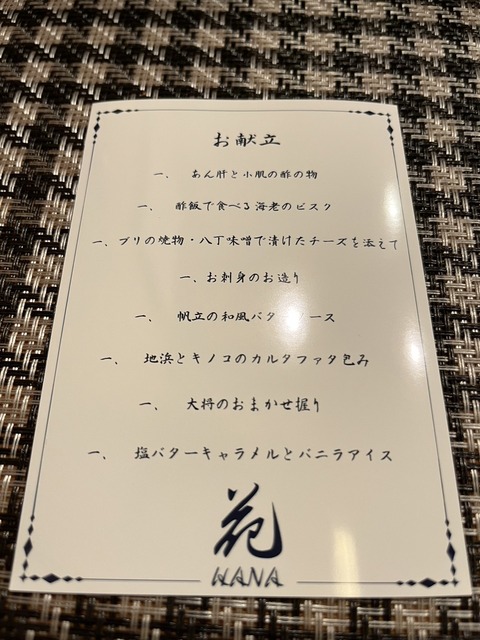 お献立
一、 あん肝と小肌の酢の物
一、 酢飯で食べる海老のビスク
一、ブリの焼物・八丁味噌で漬けたチーズを添えて
一、お刺身のお造り
一、 帆立の和風バターソース
一、 地浜とキノコのカルタファタ包み
一、 大将のおまかせ握り
一、 塩バターキャラメルとバニラアイス
花
HANA